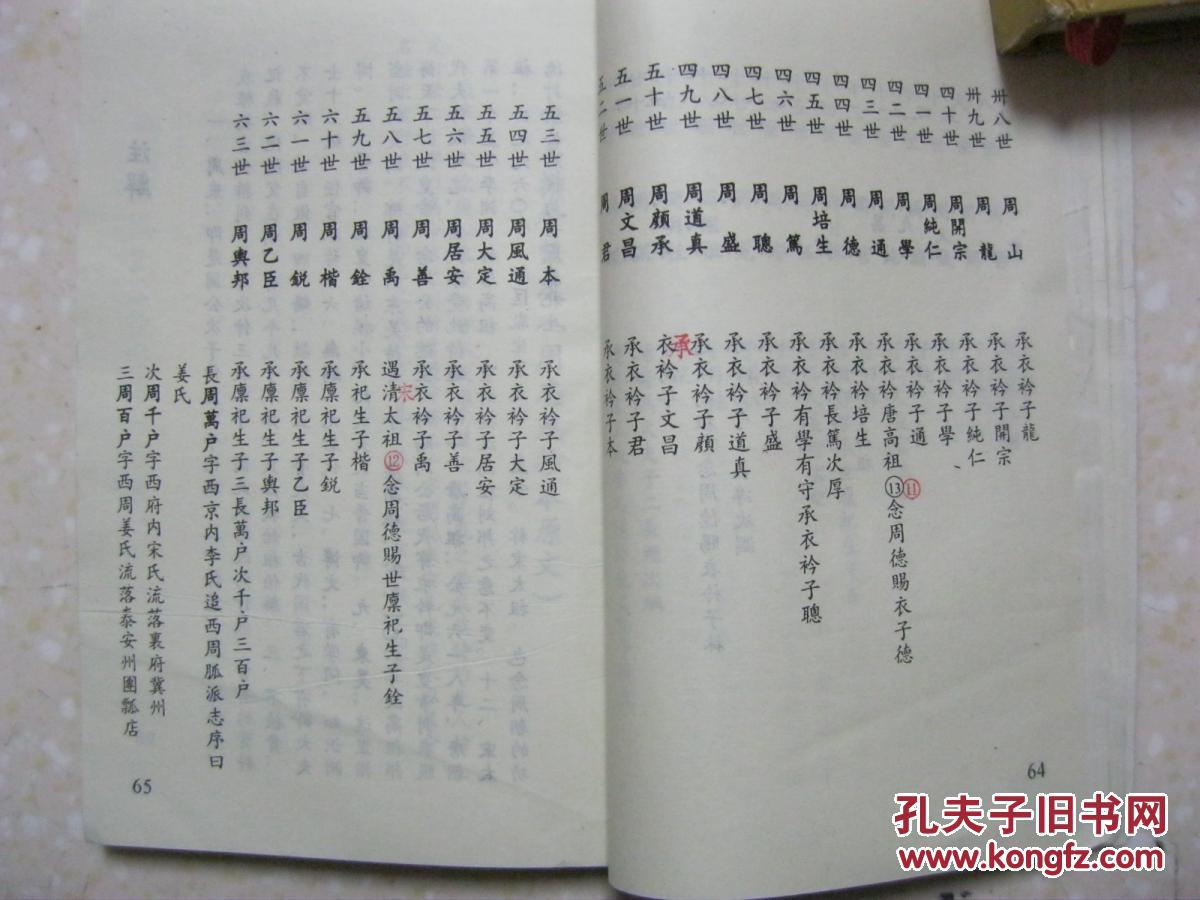 卅八世 周山 承衣衿子龍
卅九世 周龍 承衣衿子開宗
四十世 周開宗 承衣衿子純仁
四一世 周純仁 承衣衿子學
四二世 周學 承衣衿子通
四三世 周通 承衣衿唐高祖⑬⑪念周德賜衣子德
四四世 周德 承衣衿培生
四五世 周培生 承衣衿長篤次厚
四六世 周篤 承衣衿有學有守承衣衿子聰
四七世 周聰 承衣衿子盛
四八世 周盛 承衣衿子道真
四九世 周道真 承衣衿子顧
五十世 周顧承 承衣衿子文昌
五一世 周文昌 承衣衿子君
五二世 周君 承衣衿子本
64
五三世 周本 承衣衿子風通
五四世 周風通 承衣衿子大定
五五世 周大定 承衣衿子居安
五六世 周居安 承衣衿子善
五七世 周善 承衣衿子禹
五八世 周禹 遇清宋太祖⑫念周德賜世廩祀生子銓
五九世 周銓 承祀生子子楷
六十世 周楷 承廩祀生子子鋭
六一世 周鋭 承廩祀生子子乙臣
六二世 周乙臣 承廩祀生子子輿邦
六三世 周輿邦 承廩祀生子三長萬户次千户三百户
長周萬户字西京内李氏追西周胍派志序曰
姜氏
次周千户字西府内宋氏流落裏府冀州
三周百户字西周姜氏流落泰安州團瓢店
65
注解
孔夫子旧书网
www.kongfz.com